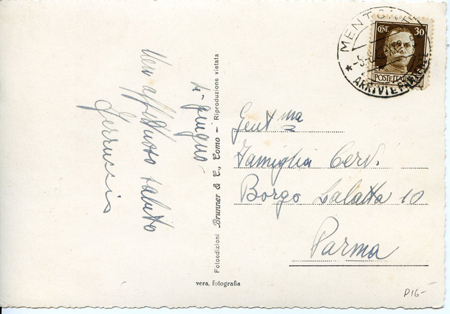 4-giugno
Un affettuoso saluto
Ferruccio
Fotoedizioni Brunner & C., Como – Riproduzione vietata
vera fotografia
MENTONE
ARRIVI E PARTENZE
CENT 30
POSTE ITALIANE
Gent.ma
Famiglia Cerv.
Borgo Salatta 10
Parma
P16-